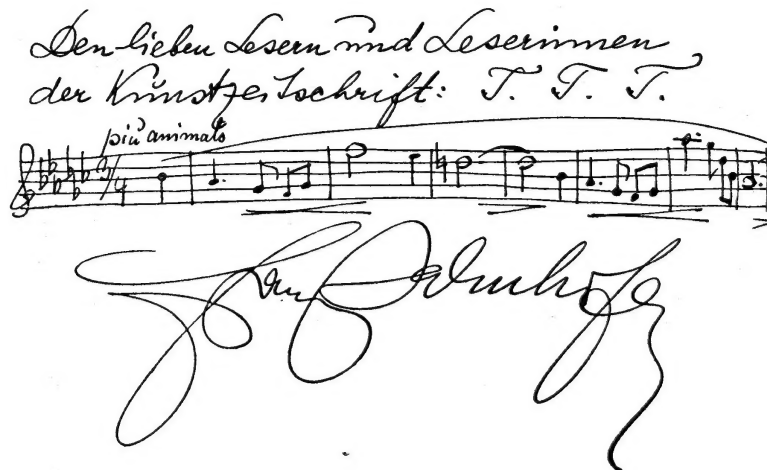 Den lieben Lesern und Leserinnen
der Kunstzeitschrift: T. T. T.
più animato
3/4